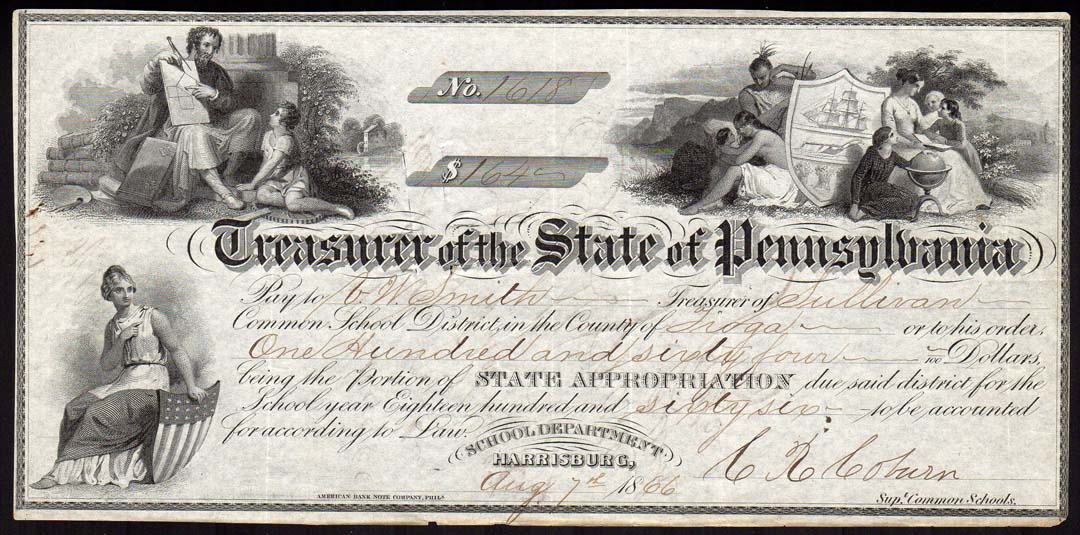 No. 1618
$ 164
Treasurer of the State of Pennsylvania
Pay to C. W. Smith Treasurer of Sullivan
Common School District, in the County of Tioga or to his order,
One Hundred and sixty four /100 Dollars,
being the Portion of STATE APPROPRIATION due said district for the
School year Eighteen hundred and sixty six to be accounted
for according to Law.
SCHOOL DEPARTMENT
HARRISBURG,
Aug 7th 1866
C R Coburn
AMERICAN BANK NOTE COMPANY, PHILA
Supt. Common Schools.